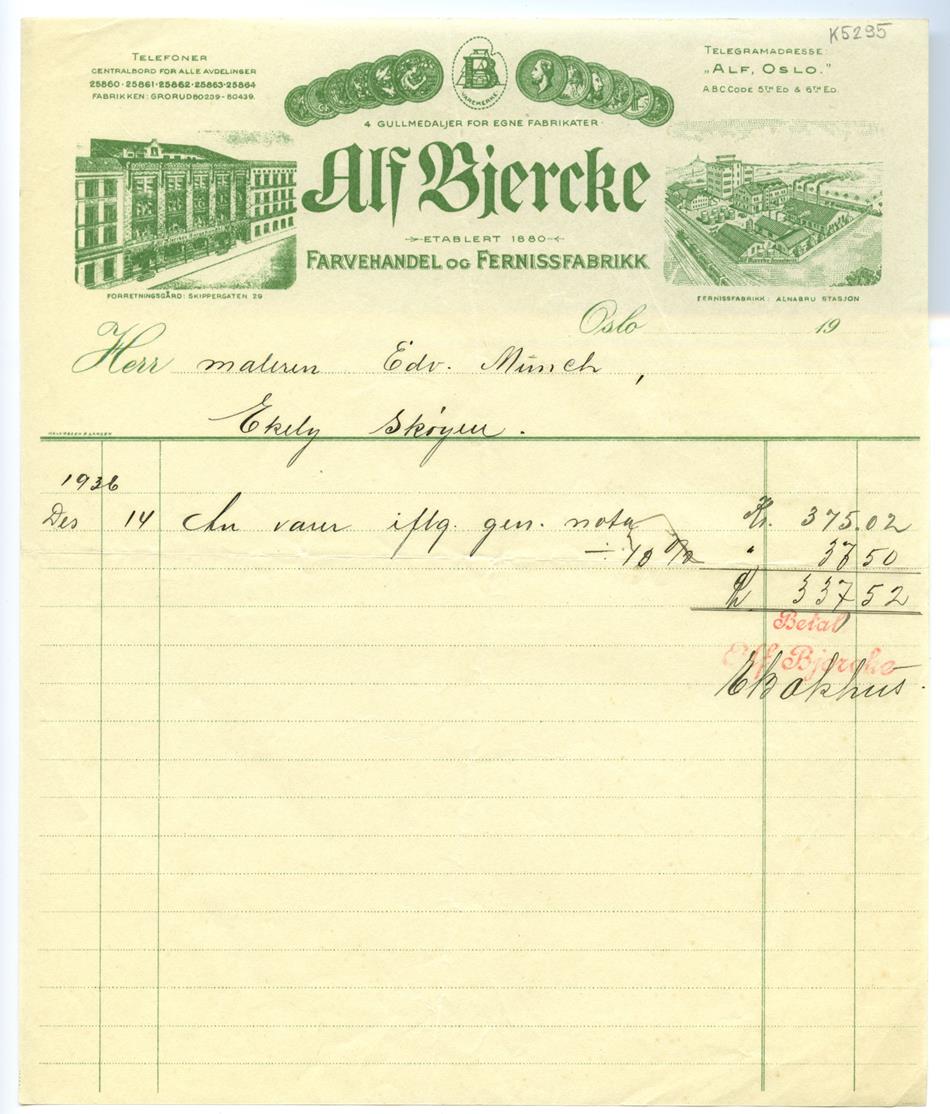 K5295
TELEFONER
CENTRALBORD FOR ALLE AVDELINGER
25860 · 25861 · 25862 · 25863 · 25864
FABRIKKEN: GRORUD 80239 - 80439.
VAREMERKE
TELEGRAMADRESSE:
„ALF, OSLO."
A.B.C. CODE 5TH ED & 6TH ED.
4 GULLMEDALJER FOR EGNE FABRIKATER
Alf Bjercke
ETABLERT 1880
FARVEHANDEL OG FERNISSFABRIKK
FORRETNINGSGÅRD: SKIPPERGATEN 29
FERNISSFABRIKK: ALNABRU STASJON
Oslo 19
Herr maleren Edv. Munch,
Ekely Skøyen.
HALVORSEN & LARSEN
1936
Des 14 An varer iflg. gen. nota Kr. 375.02
÷ 10 % " 37 50
Kr 337 52
Betalt
Alf Bjercke
E Bakhus.